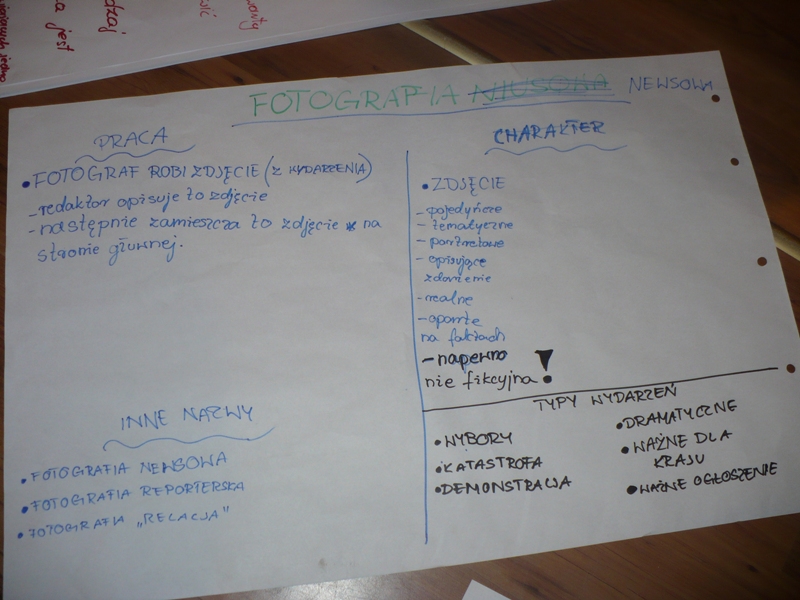 wanty
ść
dzaj
a jest
FOTOGRAFIA NIUSOWA NEWSOWA
PRACA
• FOTOGRAF ROBI ZDJĘCIE (Z WYDARZENIA)
- redaktor opisuje to zdjęcie
- następnie zamieszcza to zdjęcie na
stronie głuwnej.
INNE NAZWY
• FOTOGRAFIA NEWSOWA
• FOTOGRAFIA REPORTERSKA
• FOTOGRAFIA „RELACJA"
CHARAKTER
• ZDJĘCIE
- pojedyńcze
- tematyczne
- portretowe
- opisujące
zdarzenie
- realne
- oparte
na faktach
- napewno
nie fikcyjna!
TYPY WYDARZEŃ
• WYBORY
• KATASTROFA
• DEMONSTRACJA
• DRAMATYCZNE
• WAŻNE DLA
KRAJU
• WAŻNE OGŁOSZENIE